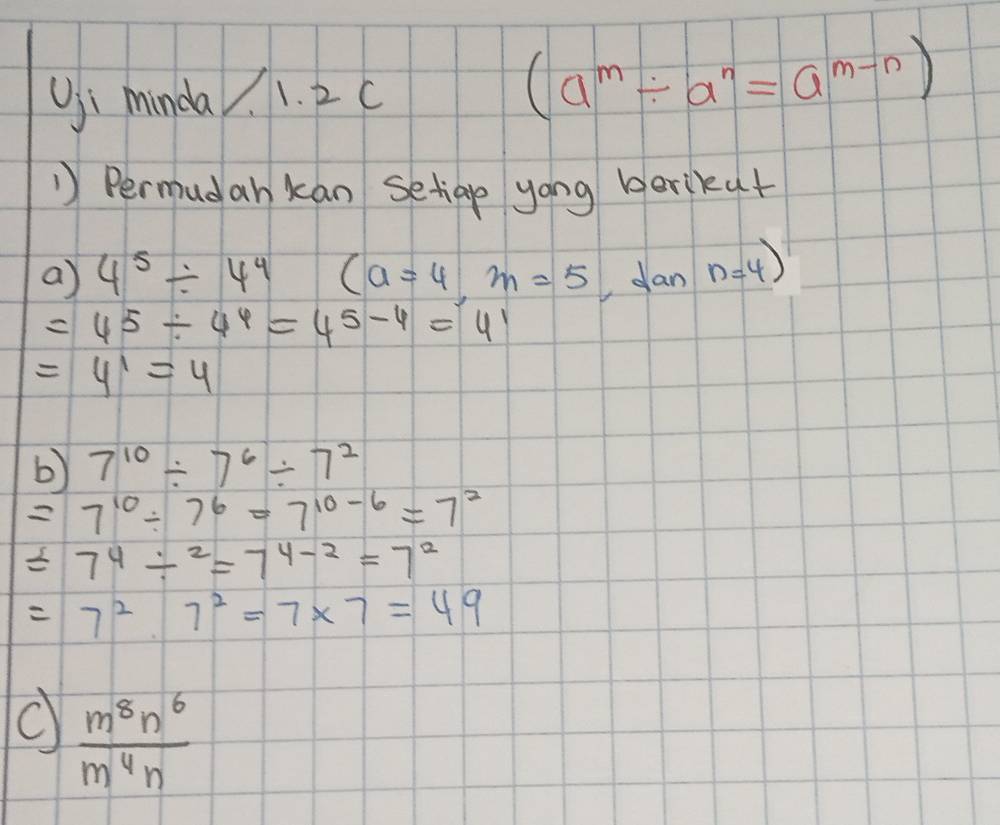 Uji minda 1.2 C (a^m ÷ a^n = a^{m-n})
1) Permudahkan setiap yang berikut
a) 4^5 ÷ 4^4 (a = 4, m = 5, dan n=4)
= 4^5 ÷ 4^4 = 4^{5-4} = 4^1
= 4^1 = 4
b) 7^{10} ÷ 7^6 ÷ 7^2
= 7^{10} ÷ 7^6 = 7^{10-6} = 7^2
= 7^4 ÷ ^2 = 7^{4-2} = 7^2
= 7^2. 7^2 = 7 × 7 = 49
C) m^8n^6
m^4n